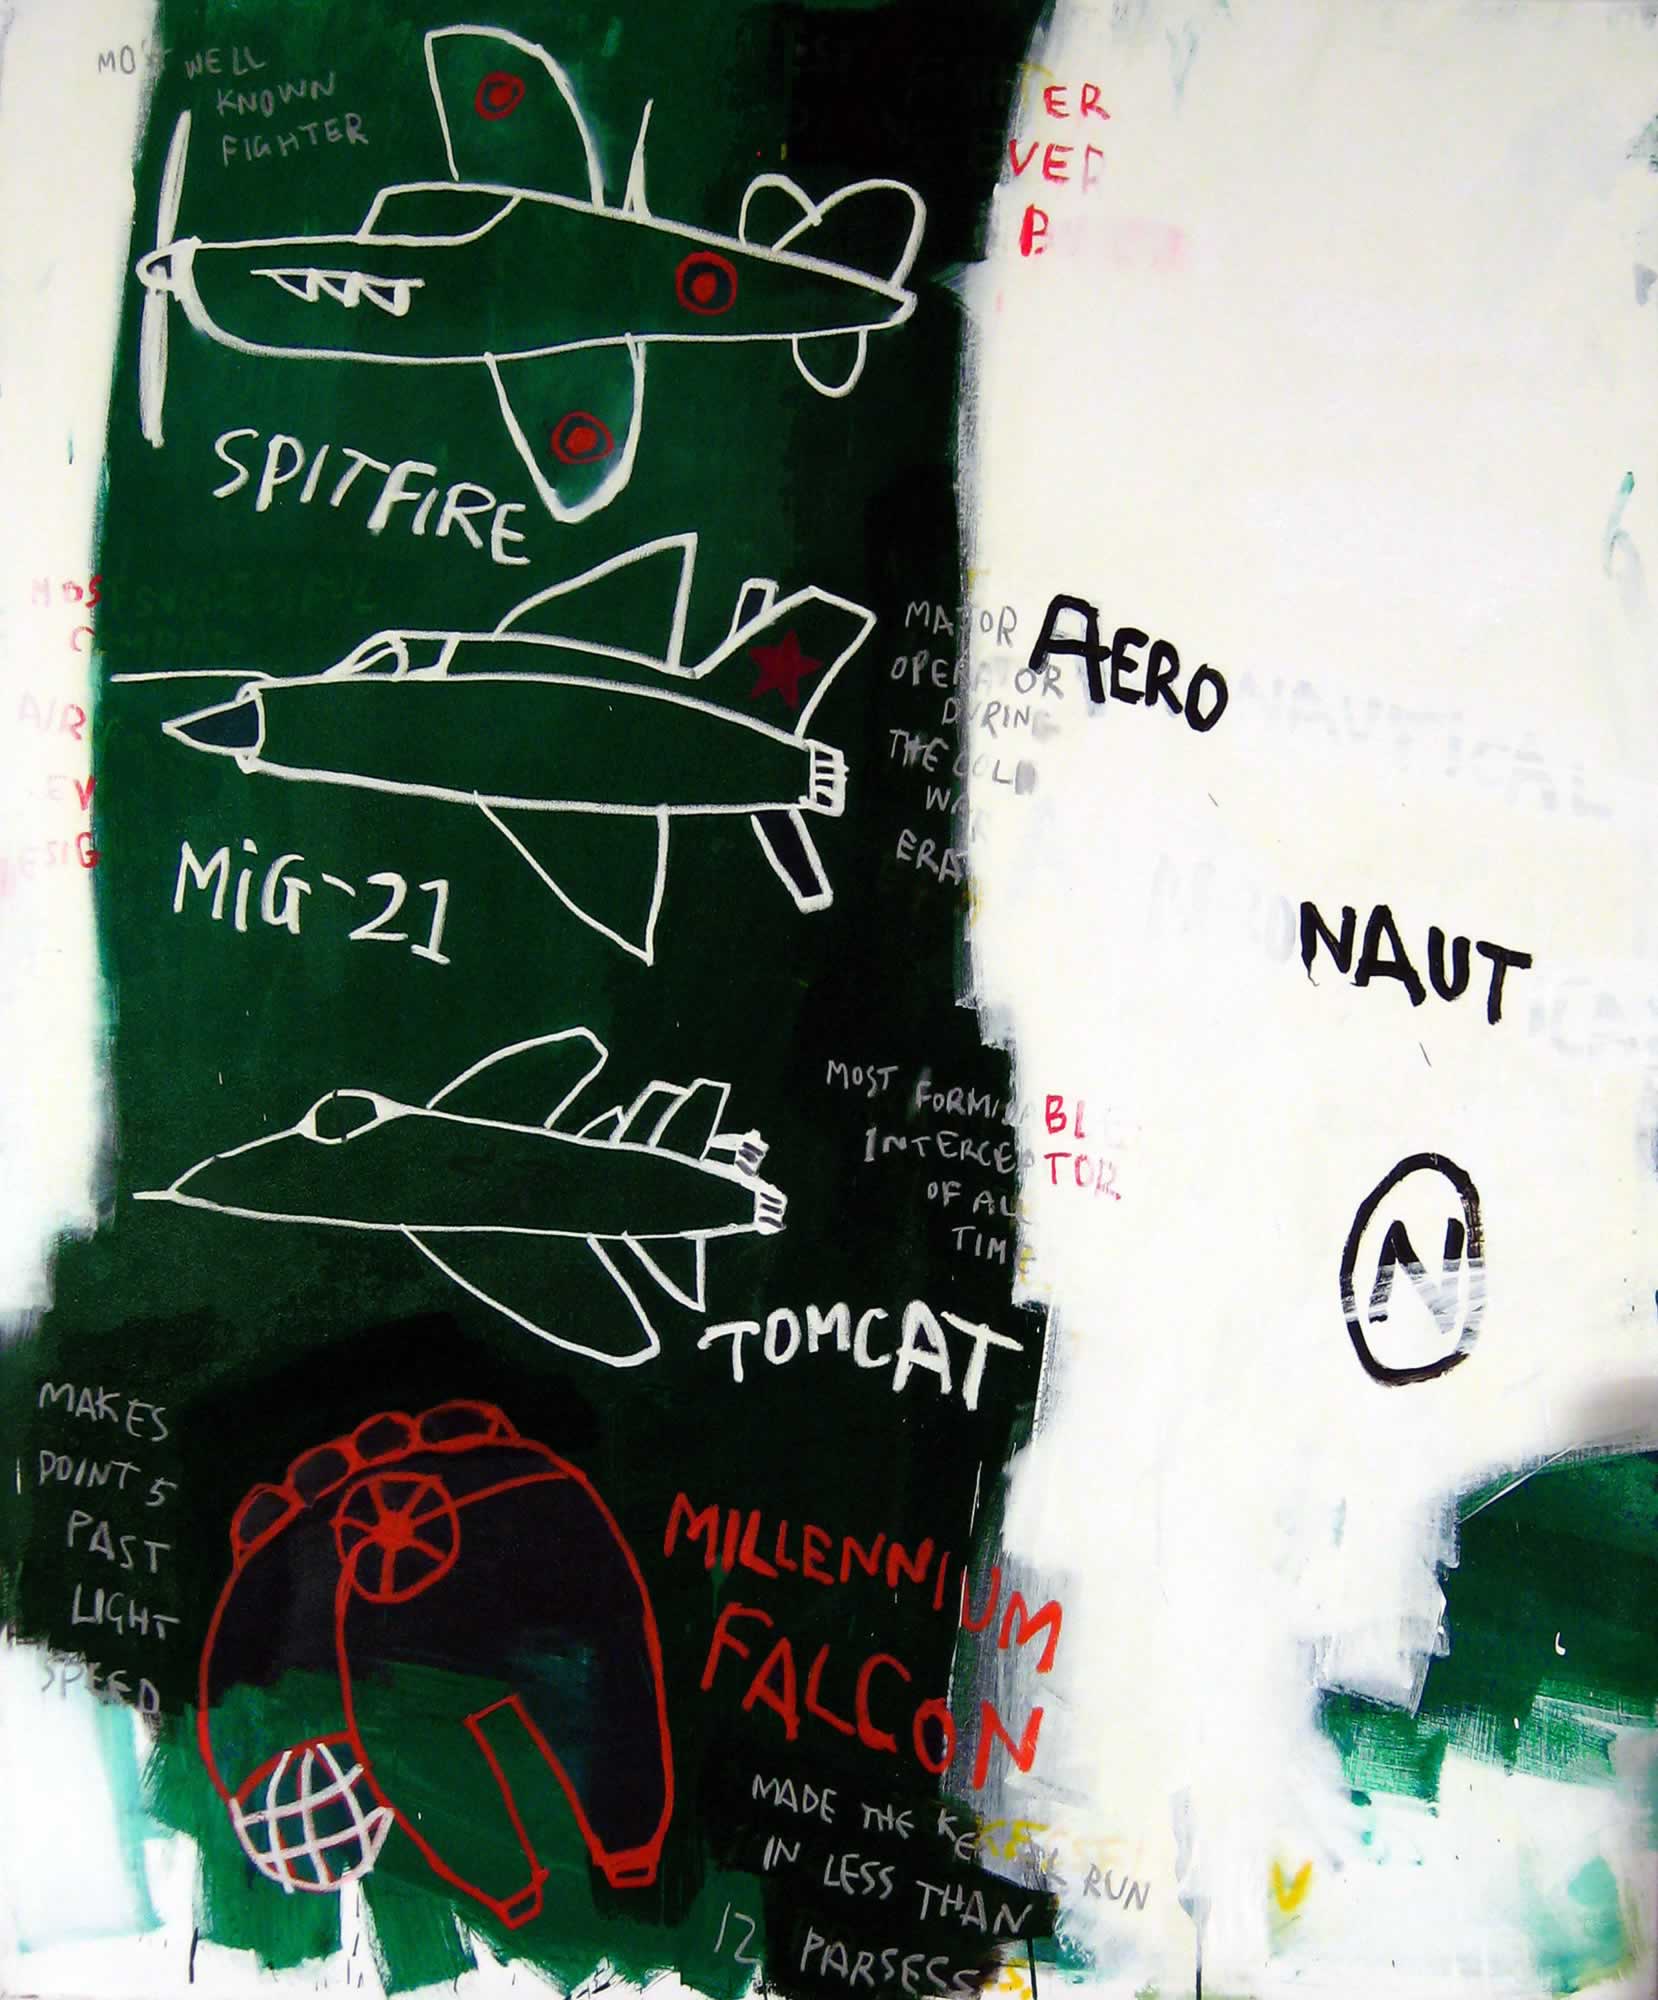 MOST WELL
KNOWN
FIGHTER
ER
VER
B
SPITFIRE
MOS
AIR
EV
ESIG
MAJOR
OPERATOR
DURING
THE COLD
WAR
ERA
AERO
MiG-21
NAUT
MOST FORMIDABLE
INTERCEPTOR
OF ALL
TIME
N
TOMCAT
MAKES
POINT 5
PAST
LIGHT
SPEED
MILLENNIUM
FALCON
MADE THE KESSEL RUN
IN LESS THAN
12 PARSECS
V